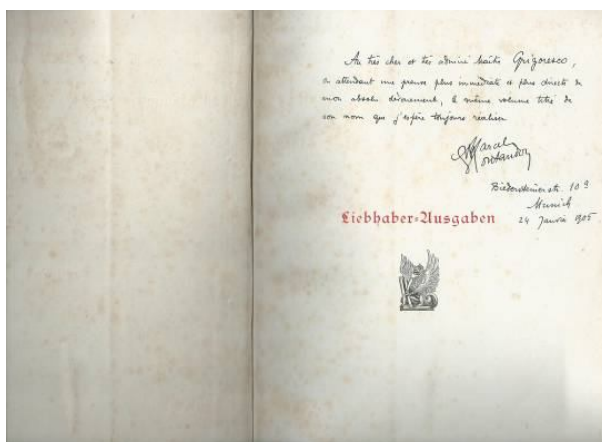 Au très cher et très admiré Maître Grigoresco,
en attendant une preuve plus immédiate et plus directe de
mon absolu dévouement, le même volume titré de
son nom que j'espère toujours réaliser
Marcel
Montandon
Biedersteinerstr. 10ª
Munich
24 Janvier 1905
Liebhaber-Ausgaben